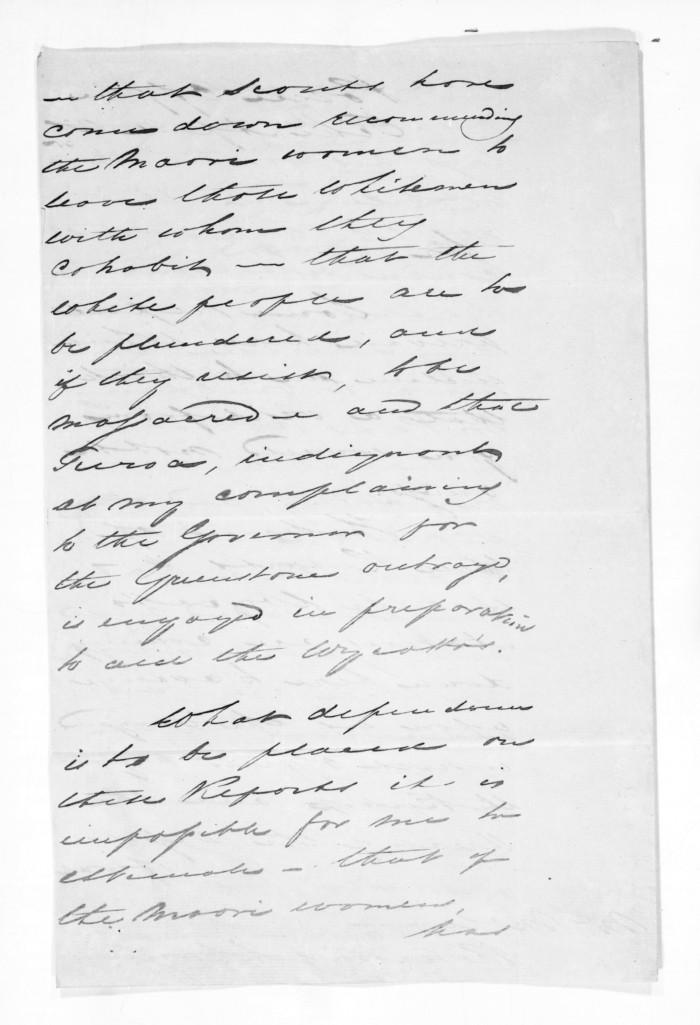 — that Scouts have
come down recommending
the Maori women to
leave those Whitemen
with whom they
cohabit — that the
white people are to
be plundered, and
if they resist, to be
massacred — and that
Turoa, indignant
at my complaining
to the Governor for
the Greenstone outrage,
is engaged in preparation
to aid the Wycatto's.
What dependance
is to be placed on
these Reports it is
impossible for me to
estimate — that of
the Maori women,
has